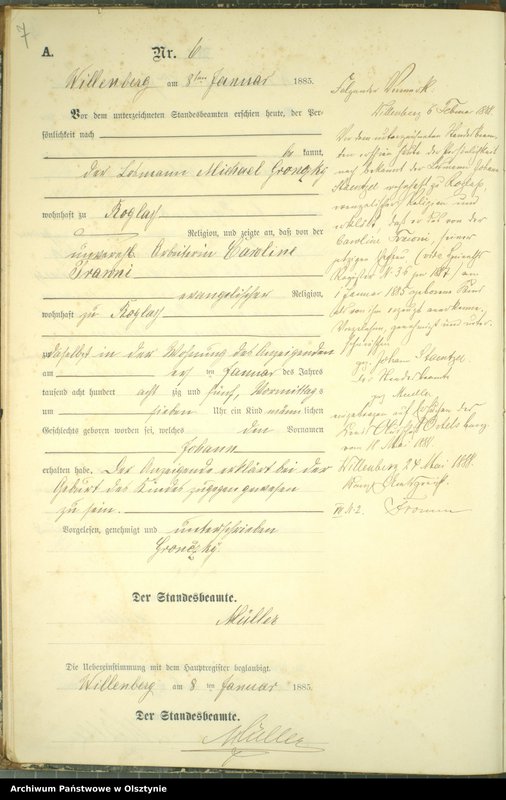 7
A.
Nr. 6
Willenberg am 8ten Januar 1885.
Vor dem unterzeichneten Standesbeamten erschien heute, der Per-
sönlichkeit nach
be kannt,
der Losmann Michael Gronzky
wohnhaft zu Roglas
Religion, und zeigte an, daß von der
unvereh. Arbeiterin Caroline
evangelischer Religion,
wohnhaft zu Roglas
daselbst in der Wohnung des Anzeigenden
am ersten Januar des Jahres
tausend acht hundert acht zig und fünf, Vormittags
um sieben Uhr ein Kind männlichen
Geschlechts geboren worden sei, welches den Vornamen
Johann
erhalten habe. Der Anzeigende erklärt bei der
Geburt des Kindes zugegen gewesen
zu sein.
Vorgelesen, genehmigt und unterschrieben
Gronczky.
Der Standesbeamte.
Müller
Die Uebereinstimmung mit dem Hauptregister beglaubigt.
Willenberg am 8ten Januar 1885.
Der Standesbeamte.
Müller
Folgender Vermerk.
Willenberg 6 Februar
Vor dem unterzeichneten Standesbeam-
ten erschien heute der Persönlichkeit
nach bekannt der Johann
wohnhaft zu Roglas,
evangelischer Religion und
erklärt, daß er das von der
Caroline seiner
jetzigen Ehefrau,
Register N. 36 am
1 Januar 1885 geborene Kind
als von ihm erzeugt anerkenne.
Vorgelesen, genehmigt und unter-
schrieben
gez. Johann
Der Standesbeamte
gez. Mueller
eingetragen auf der
Ortelsburg
vom 18 Mai
Willenberg 24 Mai 1888.
Fromm
Archiwum Państwowe w Olsztynie